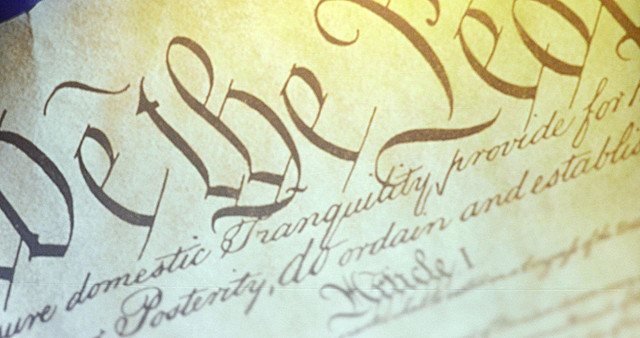 We the Peo
ure domestic Tranquility, provide for
Posterity, do ordain and establis
Article I